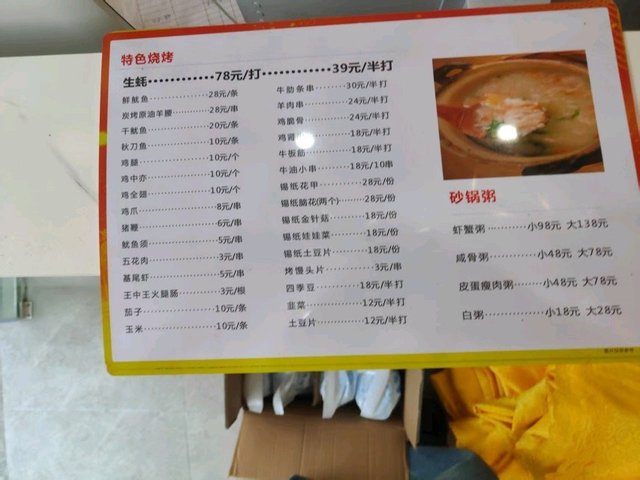 特色烧烤
生蚝············78元/打············39元/半打
鲜鱿鱼···············28元/条
炭烤原油羊腰···············28元/串
干鱿鱼···············20元/条
秋刀鱼···············10元/条
鸡腿···············10元/个
鸡中亦···············10元/个
鸡全翅···············10元/个
鸡爪···············8元/串
猪鞭···············6元/串
鱿鱼须···············5元/串
五花肉···············3元/串
基尾虾···············5元/串
王中王火腿肠···············3元/根
茄子···············10元/条
玉米···············10元/条
牛肋条串···············30元/半打
羊肉串···············24元/半打
鸡脆骨···············24元/半打
鸡肾···············18元/半打
牛板筋···············18元/半打
牛油小串···············18元/10串
锡纸花甲···············28元/份
锡纸脑花(两个)···············28元/份
锡纸金针菇···············18元/份
锡纸娃娃菜···············18元/份
锡纸土豆片···············18元/份
烤馒头片···············3元/串
四季豆···············18元/半打
韭菜···············12元/半打
土豆片···············12元/半打
砂锅粥
虾蟹粥············小98元 大138元
咸骨粥············小48元 大78元
皮蛋瘦肉粥············小48元 大78元
白粥············小18元 大28元